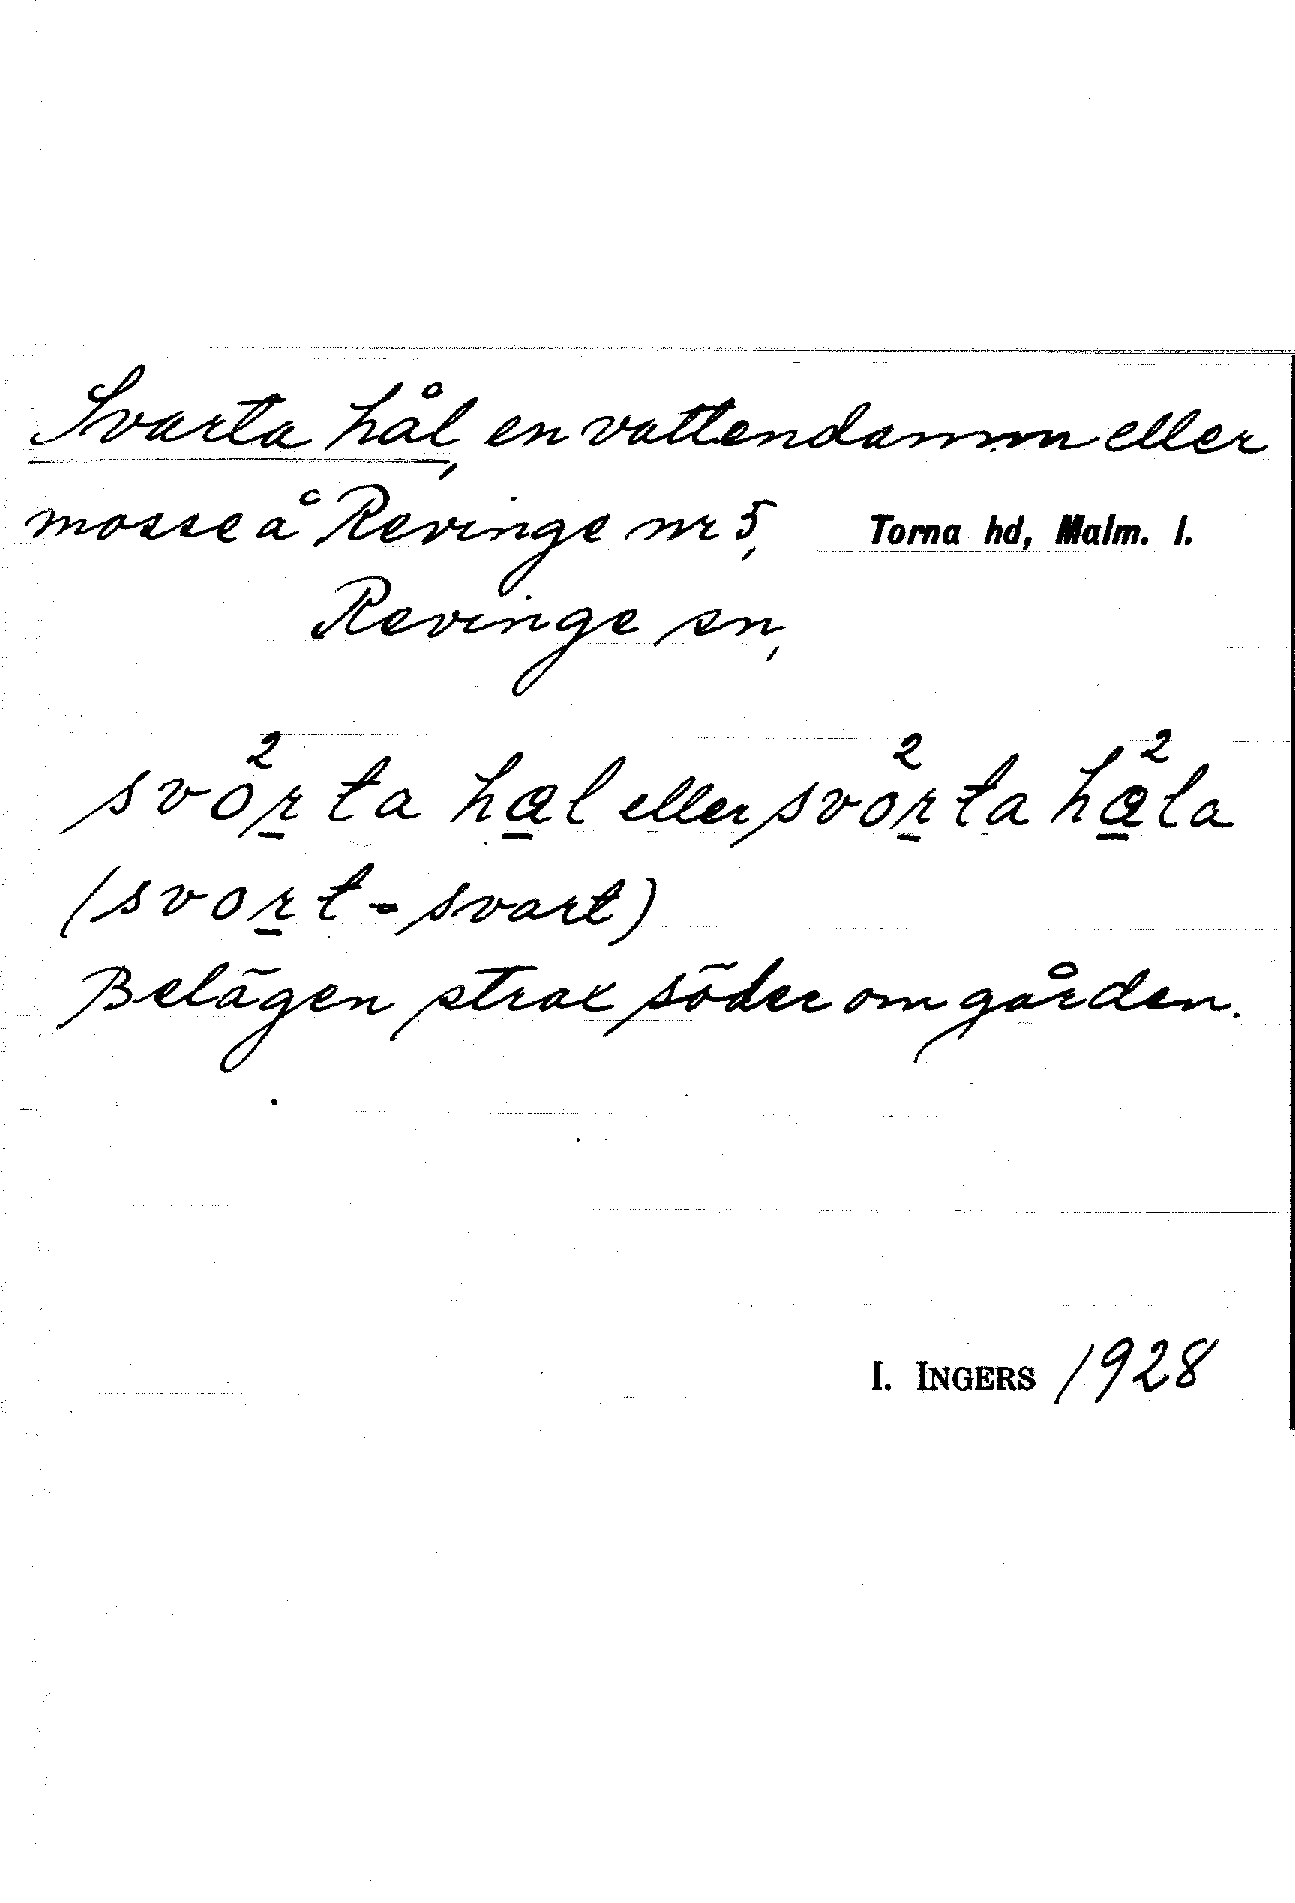 Svarta hål, en vattendamm eller
mosse å Revinge nr 5, Torna hd, Malm. l.
Revinge sn,
svo²r̲ta ha̲l eller svo²r̲ta ha̲²la
(svor̲t = svart)
Belägen strax söder om gården.
I. INGERS 1928